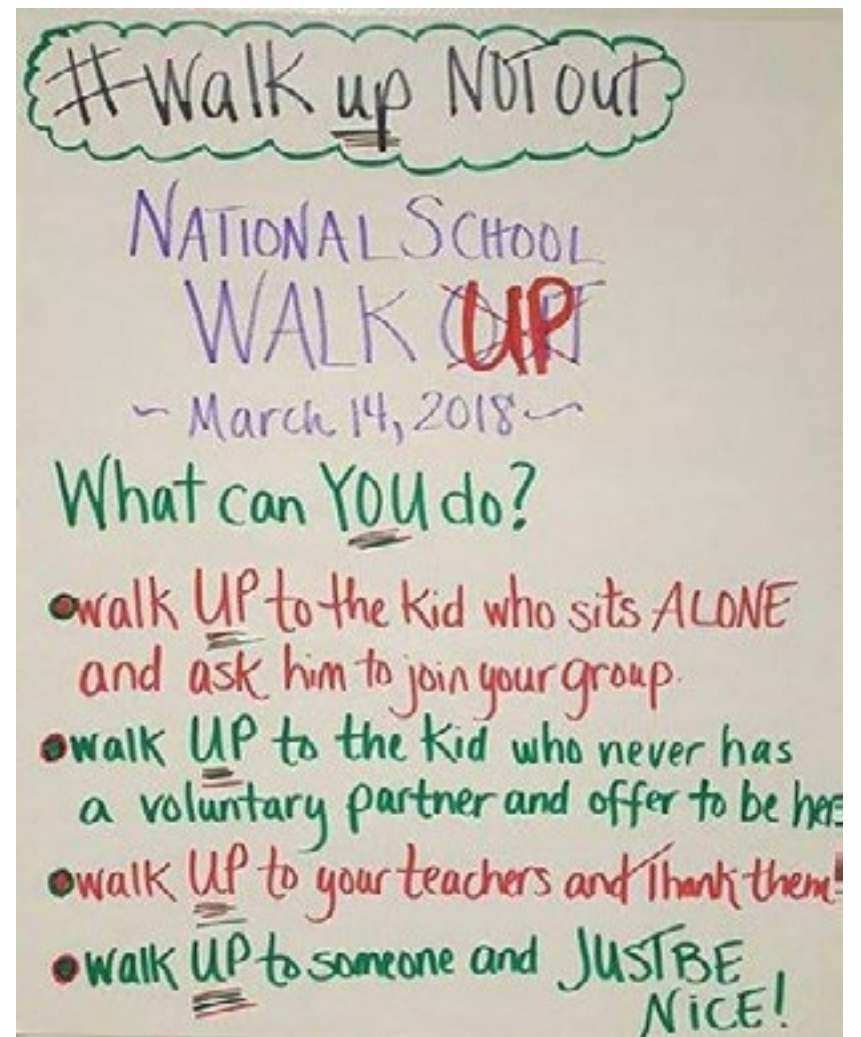 #Walk up NOT out
NATIONAL SCHOOL
WALK UP
~ March 14, 2018 ~
What can YOU do?
walk UP to the kid who sits ALONE
and ask him to join your group.
walk UP to the kid who never has
a voluntary partner and offer to be hers
walk UP to your teachers and Thank them!
walk UP to someone and JUST BE
NiCE!